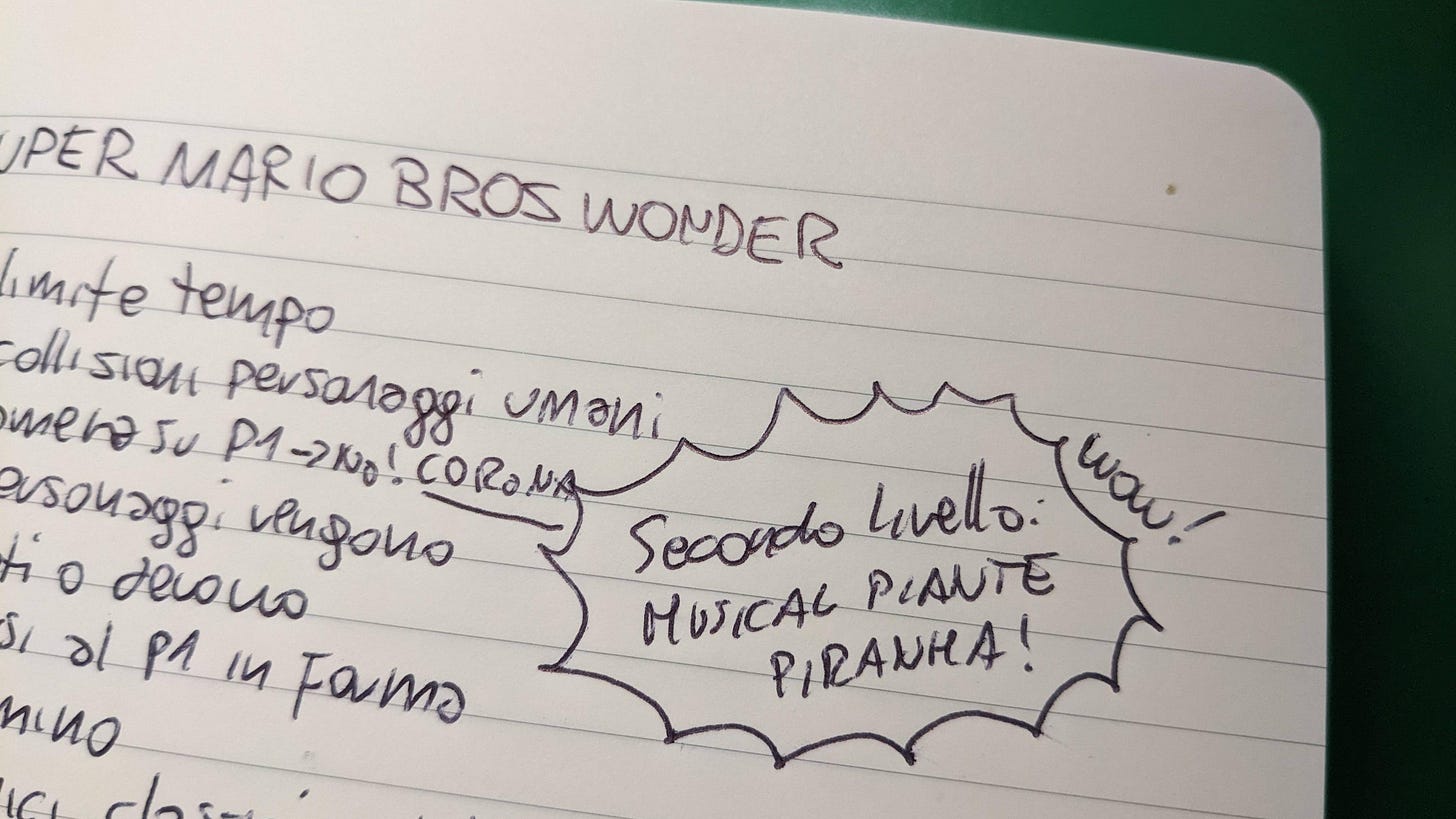 UPER MARIO BROS WONDER
limite tempo
collisioni personaggi umani
omera su P1 → No! CORONA
ersonaggi vengono
ti o devono
si al P1 in forma
mino
ici
WOW!
Secondo livello:
MUSICAL PIANTE
PIRANHA!